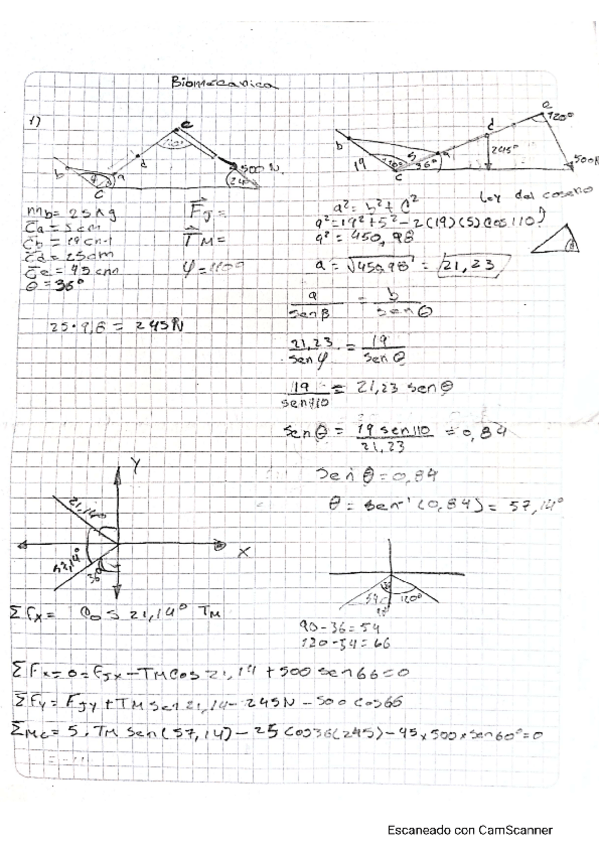 Biomecanica
1)
e
d
b
a
c
500N
24°
b
19
c
5
a
36°
d
245
e
120°
500N
Ley del coseno
mb = 25 kg
ca = 5cm
cb = 19cm
cd = 25cm
ce = 45cm
θ = 36°
FJ =
TM =
φ = 110°
25 · 9,8 = 245N
a² = b² + c²
a² = 19² + 5² - 2(19)(5) cos 110
a² = 450,98
a = √450,98 = 21,23
a/sen β = b/sen θ
21,23/sen φ = 19/sen θ
19/sen 110 = 21,23 sen θ
sen θ = 19 sen 110/21,23 = 0,84
sen θ = 0,84
θ = sen⁻¹ (0,84) = 57,14°
Y
21,14°
57,14°
36°
X
120°
90 - 36 = 54
120 - 54 = 66
Σ Fx = Cos 21,14° TM
Σ Fx = 0 = FJx - TM Cos 21,14 + 500 sen 66 = 0
Σ Fy = FJy + TM sen 21,14 - 245N - 500 cos 66
Σ Mc = 5 · TM sen (57,14) - 25 cos 36 (245) - 45 x 500 x sen 60° = 0
Escaneado con CamScanner